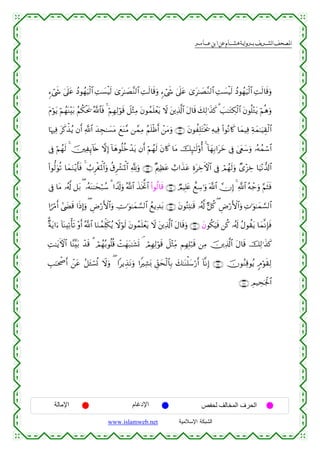 المصحف الشريف برواية هشام عن ابن عامر
وَقَالَتِ ٱلْيَهُودُ لَيْسَتِ ٱلنَّصَٰرَىٰ عَلَىٰ شَىْءٍ وَقَالَتِ ٱلنَّصَٰرَىٰ لَيْسَتِ ٱلْيَهُودُ عَلَىٰ شَىْءٍ
وَهُمْ يَتْلُونَ ٱلْكِتَٰبَ كَذَٰلِكَ قَالَ ٱلَّذِينَ لَا يَعْلَمُونَ مِثْلَ قَوْلِهِمْ فَٱللَّهُ يَحْكُمُ بَيْنَهُمْ يَوْمَ
ٱلْقِيَٰمَةِ فِيمَا كَانُوا۟ فِيهِ يَخْتَلِفُونَ وَمَنْ أَظْلَمُ مِمَّن مَّنَعَ مَسَٰجِدَ ٱللَّهِ أَن يُذْكَرَ فِيهَا
ٱسْمُهُۥ وَسَعَىٰ فِى خَرَابِهَا أُو۟لَٰٓئِكَ مَا كَانَ لَهُمْ أَن يَدْخُلُوهَا إِلَّا خَآئِفِينَ لَهُمْ فِى
ٱلدُّنْيَا خِزْىٌ وَلَهُمْ فِى ٱلْءَاخِرَةِ عَذَابٌ عَظِيمٌ وَلِلَّهِ ٱلْمَشْرِقُ وَٱلْمَغْرِبُ فَأَيْنَمَا تُوَلُّوا۟
فَثَمَّ وَجْهُ ٱللَّهِ إِنَّ ٱللَّهَ وَٰسِعٌ عَلِيمٌ قَالُوا۟ ٱتَّخَذَ ٱللَّهُ وَلَدًا سُبْحَٰنَهُۥ بَل لَّهُۥ مَا فِى
ٱلسَّمَٰوَٰتِ وَٱلْأَرْضِ كُلٌّ لَّهُۥ قَٰنِتُونَ بَدِيعُ ٱلسَّمَٰوَٰتِ وَٱلْأَرْضِ وَإِذَا قَضَىٰٓ أَمْرًا
فَإِنَّمَا يَقُولُ لَهُۥ كُن فَيَكُونَ وَقَالَ ٱلَّذِينَ لَا يَعْلَمُونَ لَوْلَا يُكَلِّمُنَا ٱللَّهُ أَوْ تَأْتِينَآ ءَايَةٌ
كَذَٰلِكَ قَالَ ٱلَّذِينَ مِن قَبْلِهِم مِّثْلَ قَوْلِهِمْ تَشَٰبَهَتْ قُلُوبُهُمْ قَدْ بَيَّنَّا ٱلْءَايَٰتِ
لِقَوْمٍ يُوقِنُونَ إِنَّآ أَرْسَلْنَٰكَ بِٱلْحَقِّ بَشِيرًا وَنَذِيرًا وَلَا تُسْـَٔلُ عَنْ أَصْحَٰبِ
ٱلْجَحِيمِ
الحرف المخالف لحفص الإدغام الإمالة
الشبكة الإسلامية www.islamweb.net